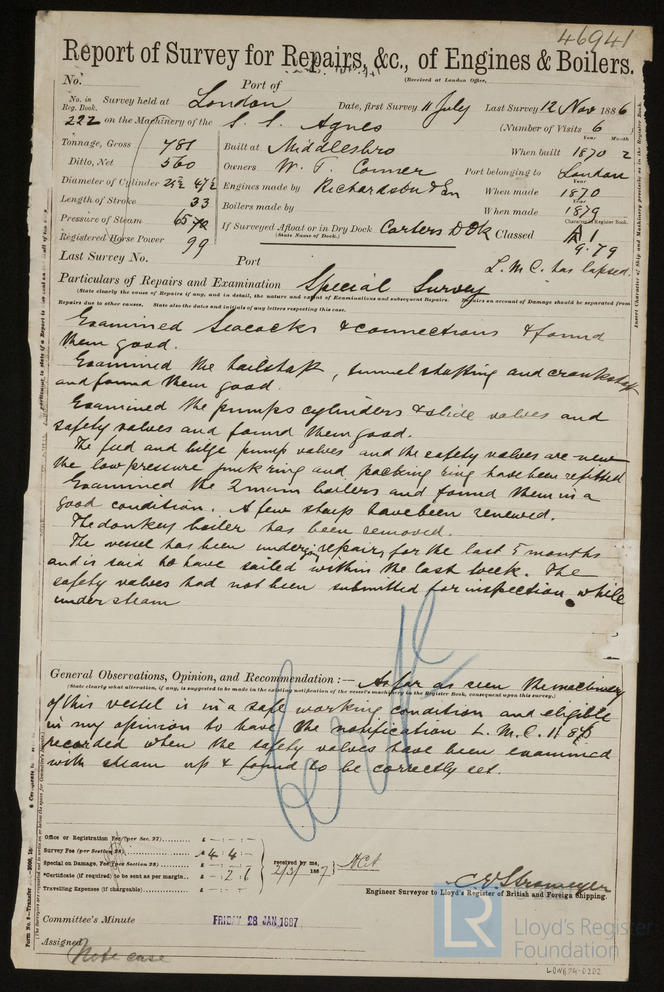 46941
Report of Survey for Repairs, &c., of Engines & Boilers.
(Received at London Office,
No. Port of
No. in Reg. Book. Survey held at London Date, first Survey 11 July Last Survey 12 Nov 1886
222 on the Machinery of the S. S. Agnes (Number of Visits 6
Tonnage, Gross 781 Built at Middlesbro When built 1870 2
Year Month
Ditto, Net 560 Owners W. T. Conner Port belonging to London
Diameter of Cylinder 25½ 47½ Engines made by Richardson & Son When made 1870
Length of Stroke 33 Boilers made by When made 1879
Pressure of Steam 65 70 If Surveyed Afloat or in Dry Dock Carters D Dk Classed A 1
(State Name of Dock.)
Character in Register Book.
Registered Horse Power 99 9.79
Last Survey No. Port L. M. C. has lapsed.
Particulars of Repairs and Examination Special Survey
(State clearly the cause of Repairs if any, and in detail, the nature and extent of Examinations and subsequent Repairs. Repairs on account of Damage should be separated from
Repairs due to other causes. State also the dates and initials of any letters respecting this case.
Examined Seacocks & connections & found
them good.
Examined the tailshaft, tunnel shafting and crankshaft
and found them good.
Examined the pumps cylinders & slide valves and
safety valves and found them good.
The feed and bilge pump valves and the safety valves are new
the low pressure junk ring and packing ring have been refitted
Examined the 2 main boilers and found them in a
good condition. A few stays have been renewed.
The donkey boiler has been removed.
The vessel has been undergoing repairs for the last 5 months
and is said to have sailed within the last week. The
safety valves had not been submitted for inspection while
under steam
General Observations, Opinion, and Recommendation :— As far as seen the machinery
(State clearly what alteration, if any, is suggested to be made in the existing notification of the vessel's machinery in the Register Book, consequent upon this survey.)
of this vessel is in a safe working condition and eligible
in my opinion to have the notification L. M. C. 11 86
recorded when the safety valves have been examined
with steam up & found to be correctly set.
Office or Registration Fee (per Sec. 27) £ - : - : -
Survey Fee (per Section 28) £ 4 : 4 : -
Special on Damage, Fee (per Section 28) £ - : - : -
*Certificate (if required) to be sent as per margin £ - : 2 : 6
Travelling Expenses (if chargeable) £ : :
received by me,
2/3/ 1887
Engineer Surveyor to Lloyd's Register of British and Foreign Shipping.
Committee's Minute FRIDAY 28 JAN 1887
Assigned Note case
LR Lloyd's Register
Foundation
LON674-0202